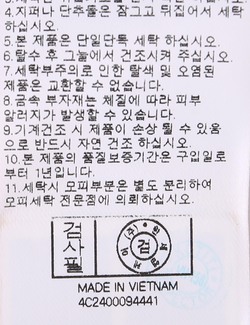 4.지퍼나 단추물은 잠그고 뒤집어서 세탁
하십시오.
5.본 제품은 단일단독 세탁 하십시오.
6.탈수 후 그늘에서 건조시켜 주십시오.
7.세탁부주의로 인한 탈색 및 오염된
제품은 교환할 수 없습니다.
8.금속 부자재는 체질에 따라 피부
알러지가 발생할 수 있습니다.
9.기계건조 시 제품이 손상 될 수 있음
으로 반드시 자연 건조 하십시오.
10.본 제품의 품질보증기간은 구입일로
부터 1년입니다.
11.세탁시 모피부분은 별도 분리하여
모피세탁 전문점에 의뢰하십시오.
검사필
검
(주)
MADE IN VIETNAM
4C2400094441